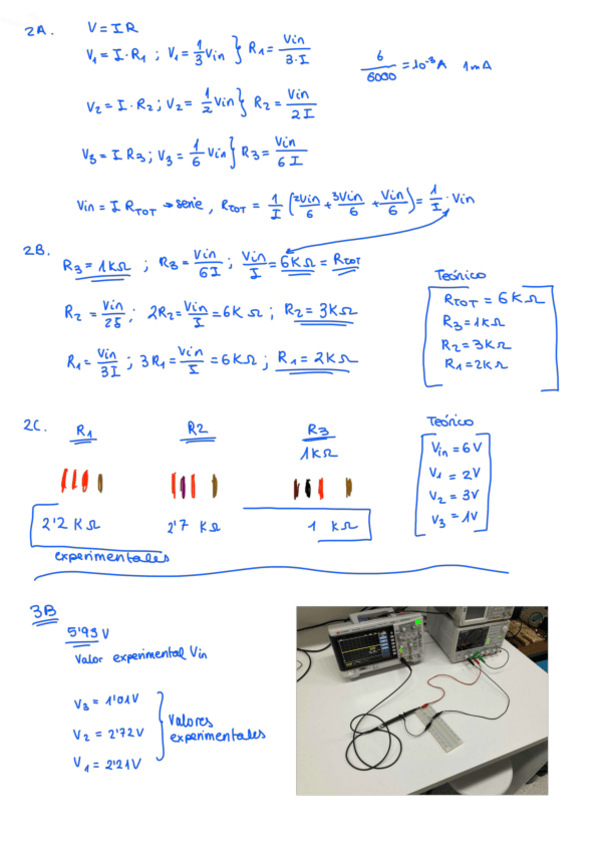 2A.
V = IR
V₁ = I·R₁ ; V₁ = 1/3 Vin } R₁ = Vin/3·I
6/6000 = 10⁻³A 1mA
V₂ = I·R₂ ; V₂ = 1/2 Vin } R₂ = Vin/2I
V₃ = I R₃ ; V₃ = 1/6 Vin } R₃ = Vin/6I
Vin = I RTOT → serie, RTOT = 1/I (2Vin/6 + 3Vin/6 + Vin/6) = 1/I · Vin
2B.
R₃ = 1KΩ ; R₃ = Vin/6I ; Vin/I = 6KΩ = RTOT
R₂ = Vin/2I ; 2R₂ = Vin/I = 6K Ω ; R₂ = 3KΩ
R₁ = Vin/3I ; 3R₁ = Vin/I = 6KΩ ; R₁ = 2KΩ
Teórico
RTOT = 6KΩ
R₃ = 1KΩ
R₂ = 3KΩ
R₁ = 2KΩ
2C.
R1
R2
R3
1KΩ
2'2 KΩ
2'7 KΩ
1 KΩ
experimentales
Teórico
Vin = 6V
V₁ = 2V
V₂ = 3V
V₃ = 1V
3B
5'93 V
Valor experimental Vin
V₃ = 1'01V
V₂ = 2'72V
V₁ = 2'21V
Valores
experimentales